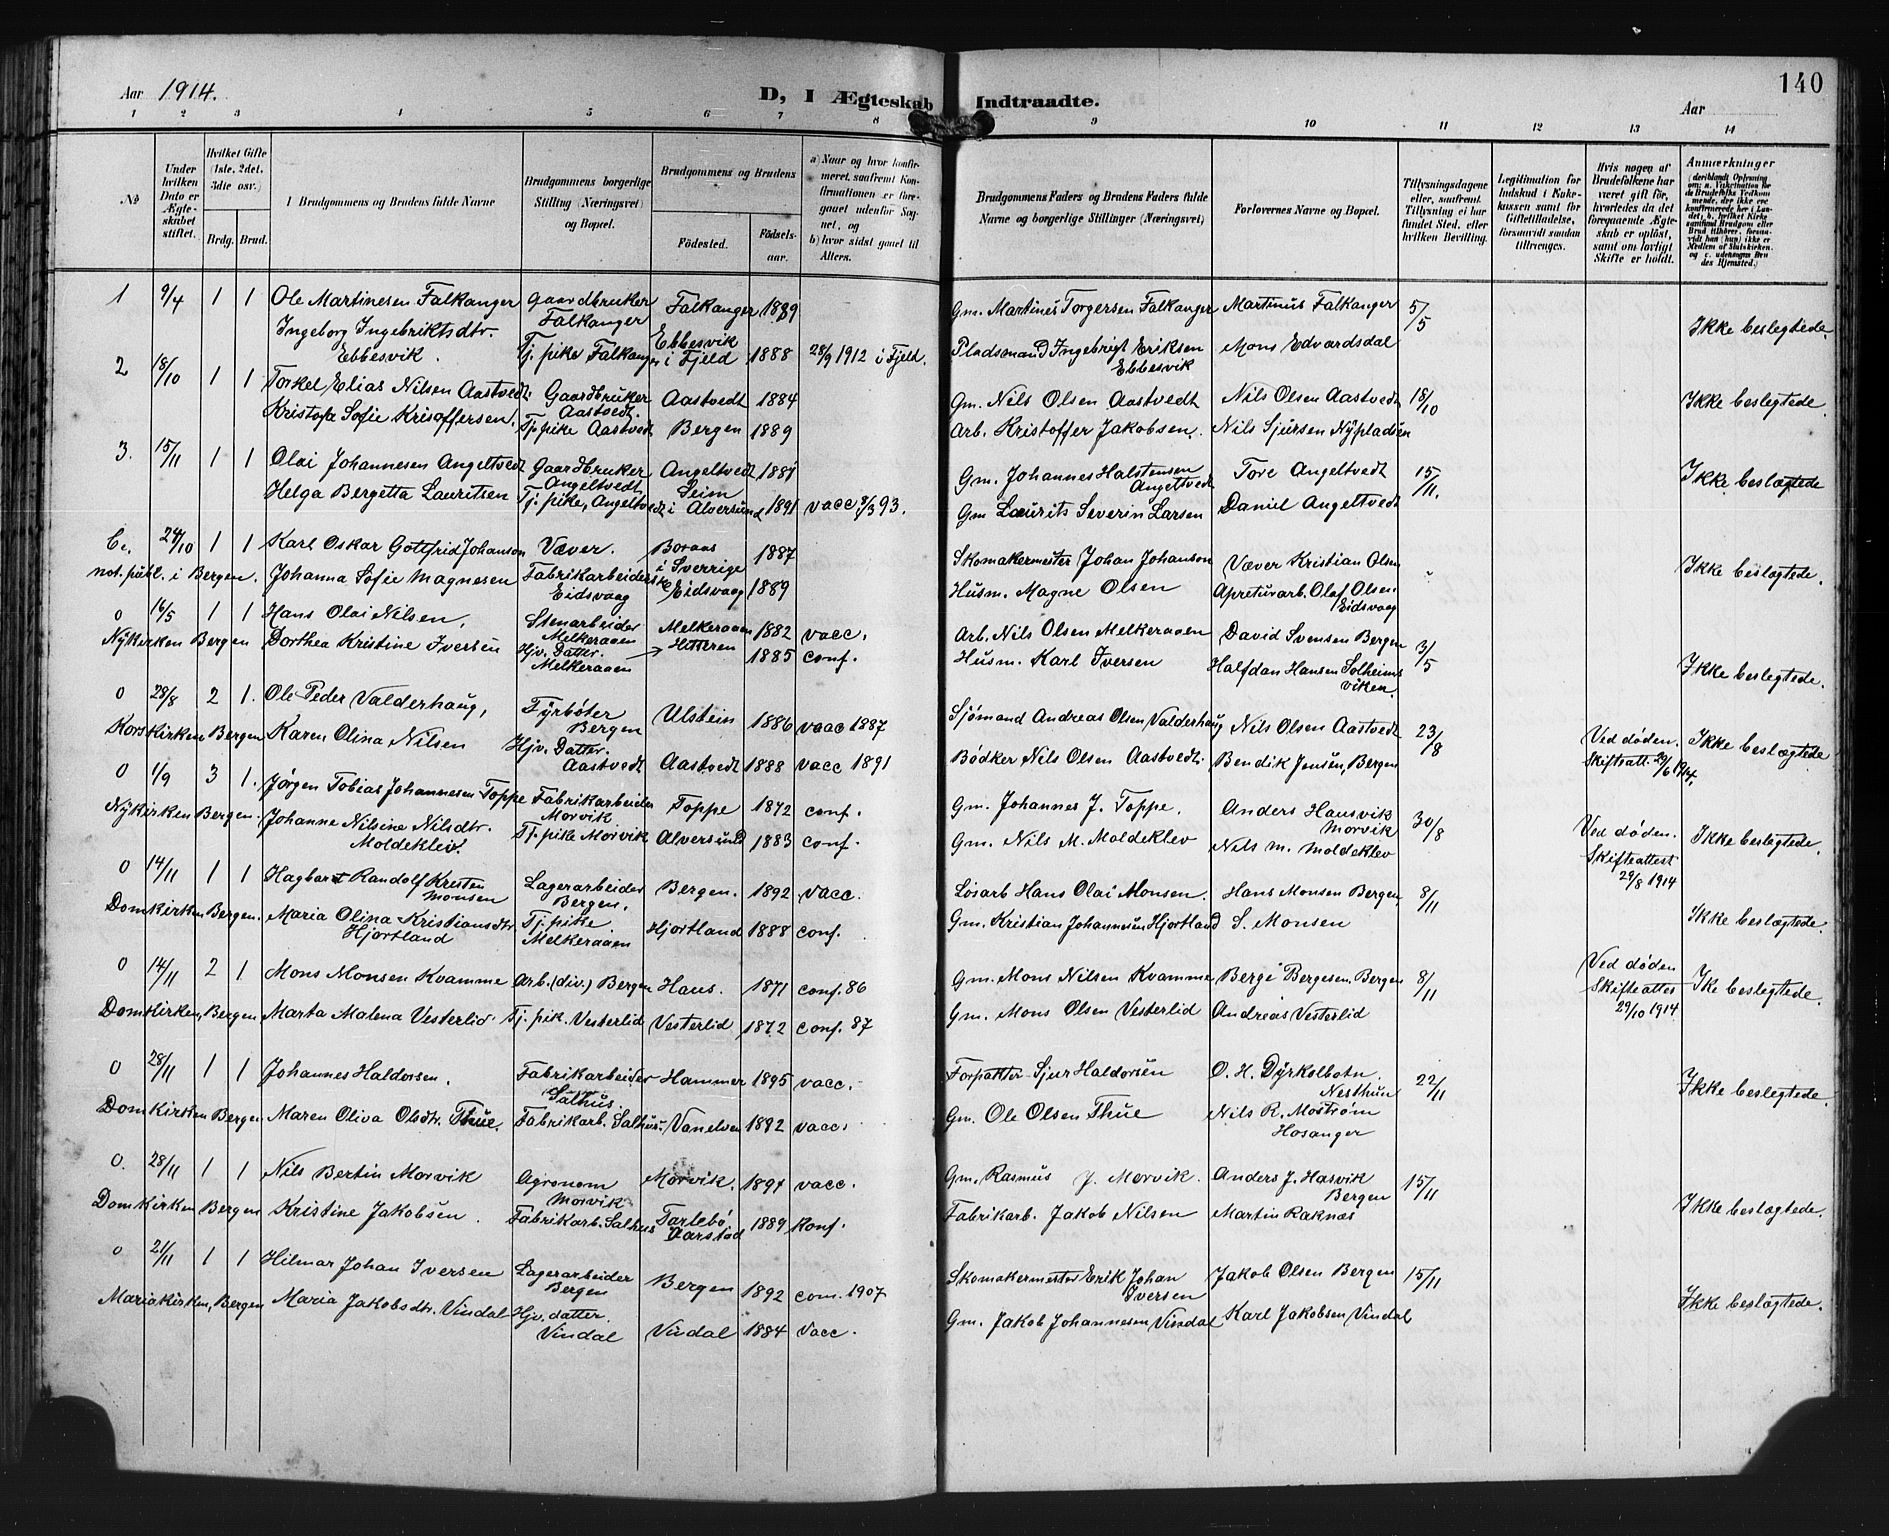 Aar 1914.
D, I Ægteskab Indtraadte.
140
Aar
1 2 3 4 5 6 7 8 9 10 11 12 13 14
No
Under hvilken Dato er Ægteskabet stiftet.
Hvilket Gifte (1ste, 2det, 3dte osv.)
Brdg. Brud.
Brudgommens og Brudens fulde Navne
Brudgommens borgerlige Stilling (Næringsvei) og Bopæl.
Brudgommens og Brudens
Fødested. Fødselsaar.
a) Naar og hvor konfirmeret, saafremt Konfirmationen er foregaaet udenfor Sognet, og
b) hvor sidst gaaet til Alters.
Brudgommens Faders og Brudens Faders fulde Navne og borgerlige Stillinger (Næringsvei)
Forlovernes Navne og Bopæl.
Tillysningsdagene eller, saafremt Tillysning ei har fundet Sted, efter hvilken Bevilling.
Legitimation for Indskud i Enkekassen samt for Giftetilladelse, forsaavidt saadan tiltrænges.
Hvis nogen af Brudefolkene har været gift før, hvorledes da det foregaaende Ægteskab er opløst, samt om lovligt Skifte er holdt.
Anmærkninger
1 9/4 1 1 Ole Martinesen Falkanger Gaardbruker Falkanger Falkanger 1889 Gm. Martines Torgersen Falkanger Martinus Falkanger 5/5 Ikke beslegtede.
Ingeborg Ingebriktsdtr. Ebbesvik. Tj. pike Falkanger Ebbesvik i Fjeld 1888 28/9 1912 i Fjeld. Pladsmand Ingebrigt Eriksen Ebbesvik Mons Edvardsdal
2 18/10 1 1 Torkel Elias Nilsen Aastvedt. Gaardbruker Aastvedt. Aastvedt 1884 Gm. Nils Olsen Aastvedt Nils Olsen Aastvedt 18/10 Ikke beslegtede.
Kristofa Sofie Kristoffersen. Tj. pike Aastvedt Bergen 1889 Arb. Kristoffer Jakobsen. Nils Sjursen Nypladsen
3. 15/11 1 1 Olai Johannesen Angeltvedt Gaardbruker Angeltvedt Angeltvedt 1887 Gm. Johannes Halstensen Angeltvedt Tore Angeltvedt 15/11. Ikke beslægtede
Helga Bergetta Lauritsen Tj. pike, Angeltvedt Seim i Alversund 1891 vacc 8/3 93. Gm Laurits Severin Larsen Daniel Angeltvedt
24/10 1 1 Karl Oskar Gottfrid Johanson Væver. Boraas i Sverrige 1887 Skomakermester Johan Johanson Væver Kristian Olsen Ikke beslegtede.
not. publ. i Bergen. Johanna Sofie Magnesen Fabrikarbeiderske Eidsvaag Eidsvaag 1889 Husm. Magne Olsen Apreturarb. Olaf Olsen Eidsvaag
0 16/5 1 1 Hans Olai Nilsen, Stenarbeider Melkeraaen Melkeraaen 1882 vacc. Arb. Nils Olsen Melkeraaen David Svensen Bergen 3/5 Ikke beslegtede.
Nykirken Bergen Dorthea Kristine Iversen Hjv. Datter. Melkeraaen 1885 conf. Husm. Karl Iversen Halfdan Hansen Solheimsviken.
0 28/8 2 1. Ole Peder Valderhaug, Fyrbøter Bergen Ulstein 1886 vacc 1887 Sjømand Andreas Olsen Valderhaug Nils Olsen Aastvedt 23/8 Ved døden. Skifteatt. 29/6 1914. Ikke beslægtede
Korskirken Bergen Karen Olina Nilsen Hjv. Datter. Aastvedt Aastvedt 1888 vacc 1891 Bødker Nils Olsen Aastvedt. Bendik Jensen, Bergen
0 1/9 3 1. Jørgen Tobias Johannesen Toppe Fabrikarbeider Morvik Toppe 1872 conf. Gm. Johannes J. Toppe. Anders Hausvik Morvik 30/8 Ved døden. Skifteattest 29/8 1914 Ikke beslegtede.
Nykirken Bergen. Johanne Nilsine Nilsdtr. Moldeklev. Tj. pike Morvik Alversund 1883 conf. Gm. Nils M. Moldeklev Nils M. Moldeklev
0 14/11 1 1 Hagbart Randolf Kresten Monsen Lagerarbeider Bergen. Bergen. 1892 vacc. Løsarb Hans Olai Monsen. Hans Monsen Bergen 8/11 Ikke beslægtede.
Domkirken Bergen. Maria Olina Kristiansdtr Hjortland Tj. pike. Melkeraaen Hjortland 1888 conf. Gm. Kristian Johannesen Hjortland S. Monsen
0 14/11 2 1 Mons Monsen Kvamme Arb. (div.) Bergen Haus. 1871 conf. 86 Gm. Mons Nilsen Kvamme Berge Bergesen. Bergen 8/11 Ved døden Skifteattes 29/10 1914 Ike beslegtede.
Domkirken, Bergen Marta Malena Vesterlid. Tj. pik. Vesterlid Vesterlid 1872 conf. 87 Gm. Mons Olsen Vesterlid Andreas Vesterlid
0 28/11 1 1 Johannes Haldorsen. Fabrikarbeider Salhus. Hammer 1895 vacc. Forpakter Sjur Haldorsen O. H. Dyrkolbotn Nesttun 22/11 Ikke beslegtede.
Domkirken Bergen Maren Oliva Olsdtr. Thue. Fabrikarb. Salhus. Vanelven 1892 vacc. Gm. Ole Olsen Thue Nils R. Mostrøm Hosanger
0. 28/11 1 1 Nils Bertin Morvik Agronom Morvik Morvik. 1891 vacc. Gm. Rasmus J. Morvik. Anders J. Hasvik Bergen 15/11 Ikke beslægtede.
Domkirken Bergen Kristine Jakobsen. Fabrikarb. Salhus Tarlebø Aarstad 1889 konf. Fabrikarb. Jakob Nilsen Martin Raknæs
0 21/11 1 1 Hilmar Johan Iversen Lagerarbeider Bergen Bergen 1892 com. 1907 Skomakermester Erik Johan Iversen Jakob Olsen Bergen 15/11 Ikke beslegtede.
Mariakirken, Bergen Maria Jakobsdtr. Vindal Hjv. datter. Vindal Vindal 1884 vacc. Gm. Jakob Johannesen Vindal Karl Jakobsen Vindal